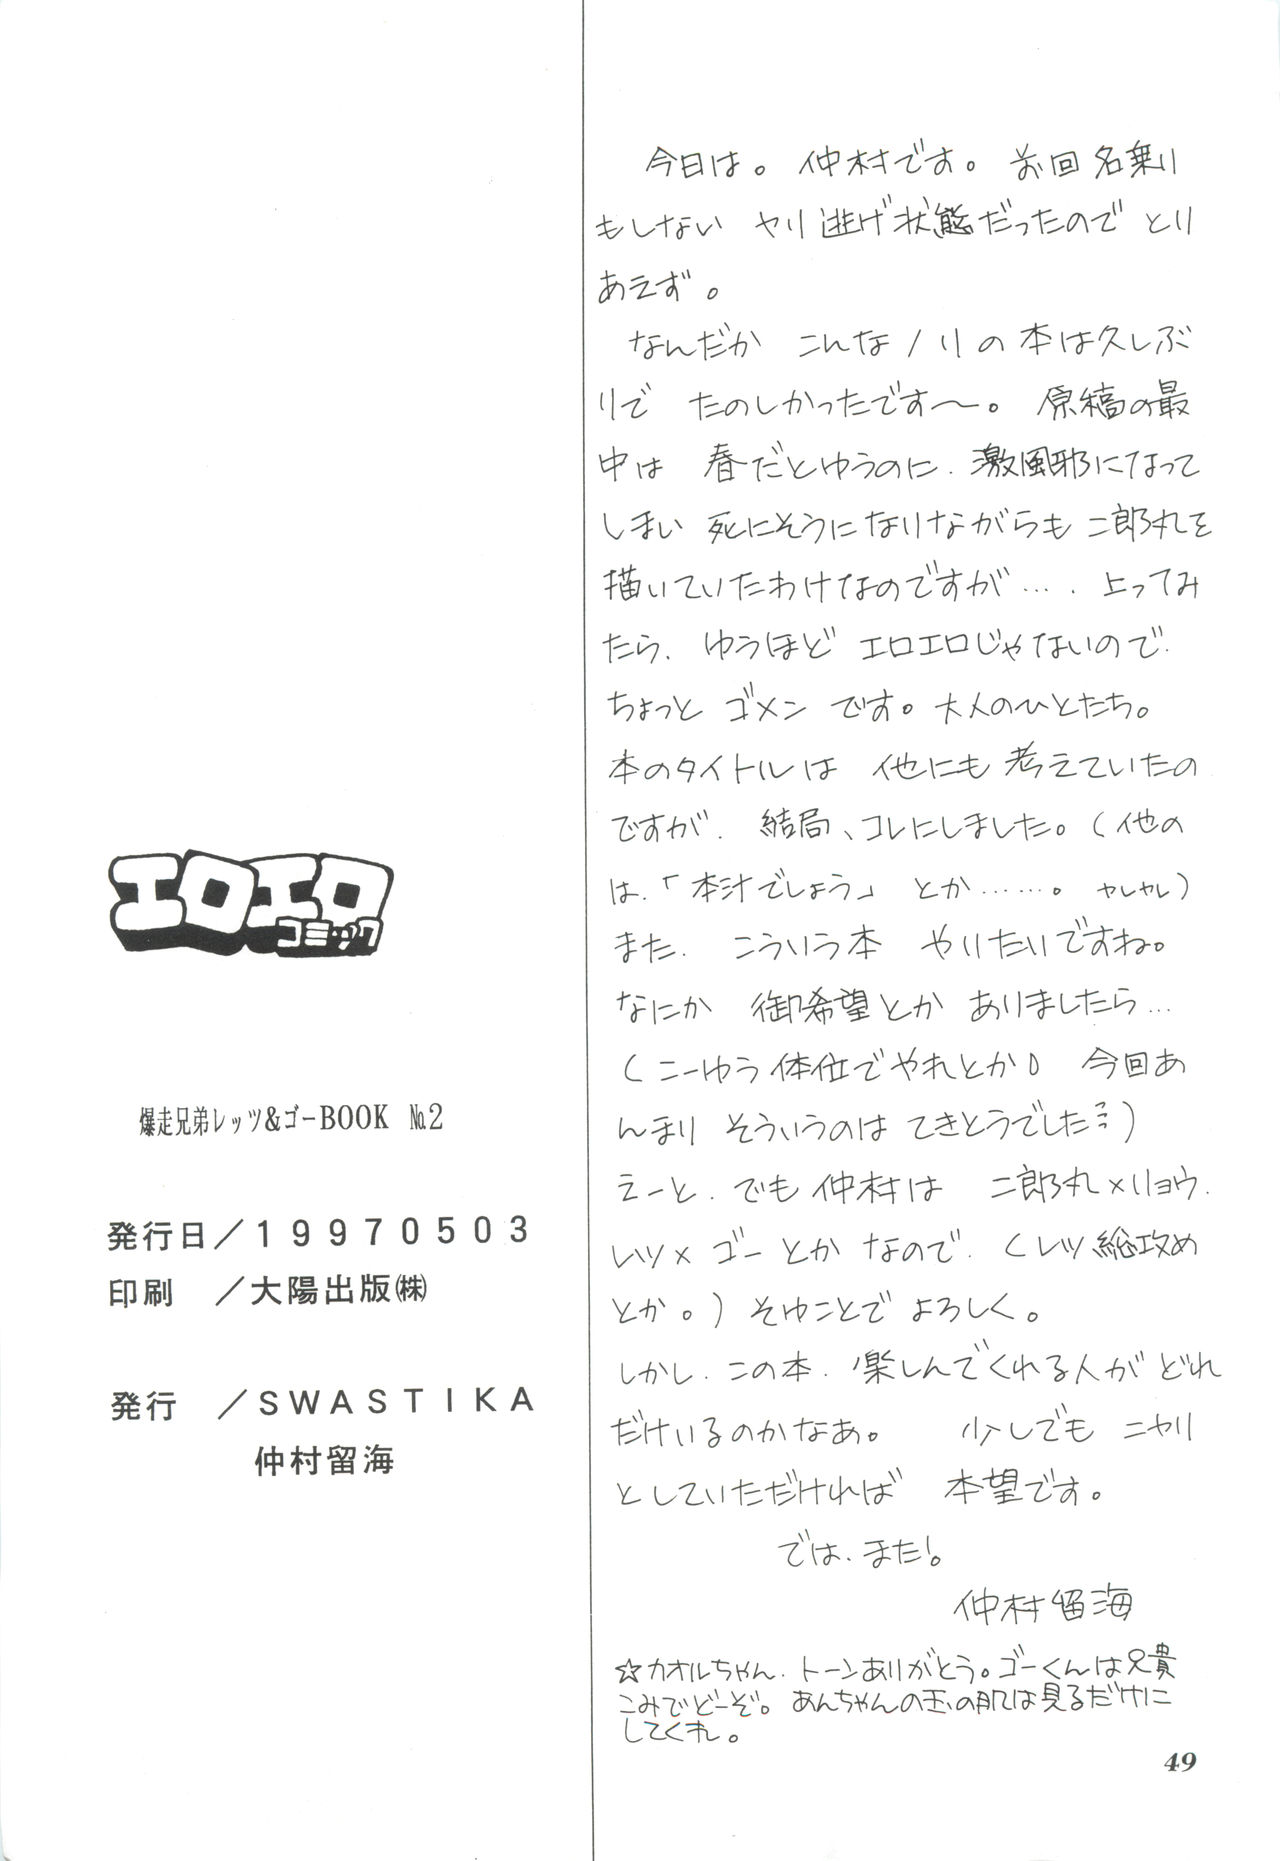 今日は。仲村です。前回名乗り
もしない ヤリ逃げ状態だったので とり
あえず。
なんだか こんなノリの本は久しぶ
りで たのしかったです〜。原稿の最
中は 春だとゆうのに、激風邪になって
しまい 死にそうになりながらも 二郎丸を
描いていたわけなのですが…、上ってみ
たら、ゆうほど エロエロじゃないので、
ちょっと ゴメン です。大人のひとたち。
本のタイトルは 他にも考えていたの
ですが、結局、コレにしました。(他の
は、「本汁でしょう」とか……。ヤレヤレ)
また、こういう本 やりたいですね。
なにか 御希望とか ありましたら…
(こーゆう体位でやれとか 今回あ
んまり そういうのは てきとうでした)
えーと、でも仲村は 二郎丸×リョウ、
レツ×ゴーとか なので、(レツ総攻め
とか。)そゆことで よろしく。
しかし、この本、楽しんでくれる人が どれ
だけいるのかなあ。 少しでも ニヤリ
としていただければ 本望です。
では、また!。
仲村留海
☆カオルちゃん、トーンありがとう。ゴーくんは兄貴
こみでどーぞ。あんちゃんの玉の肌は見るだけに
してくれ。
49
エロエロ
コミック
爆走兄弟レッツ&ゴーBOOK №2
発行日/19970503
印刷 /大陽出版㈱
発行 /SWASTIKA
仲村留海